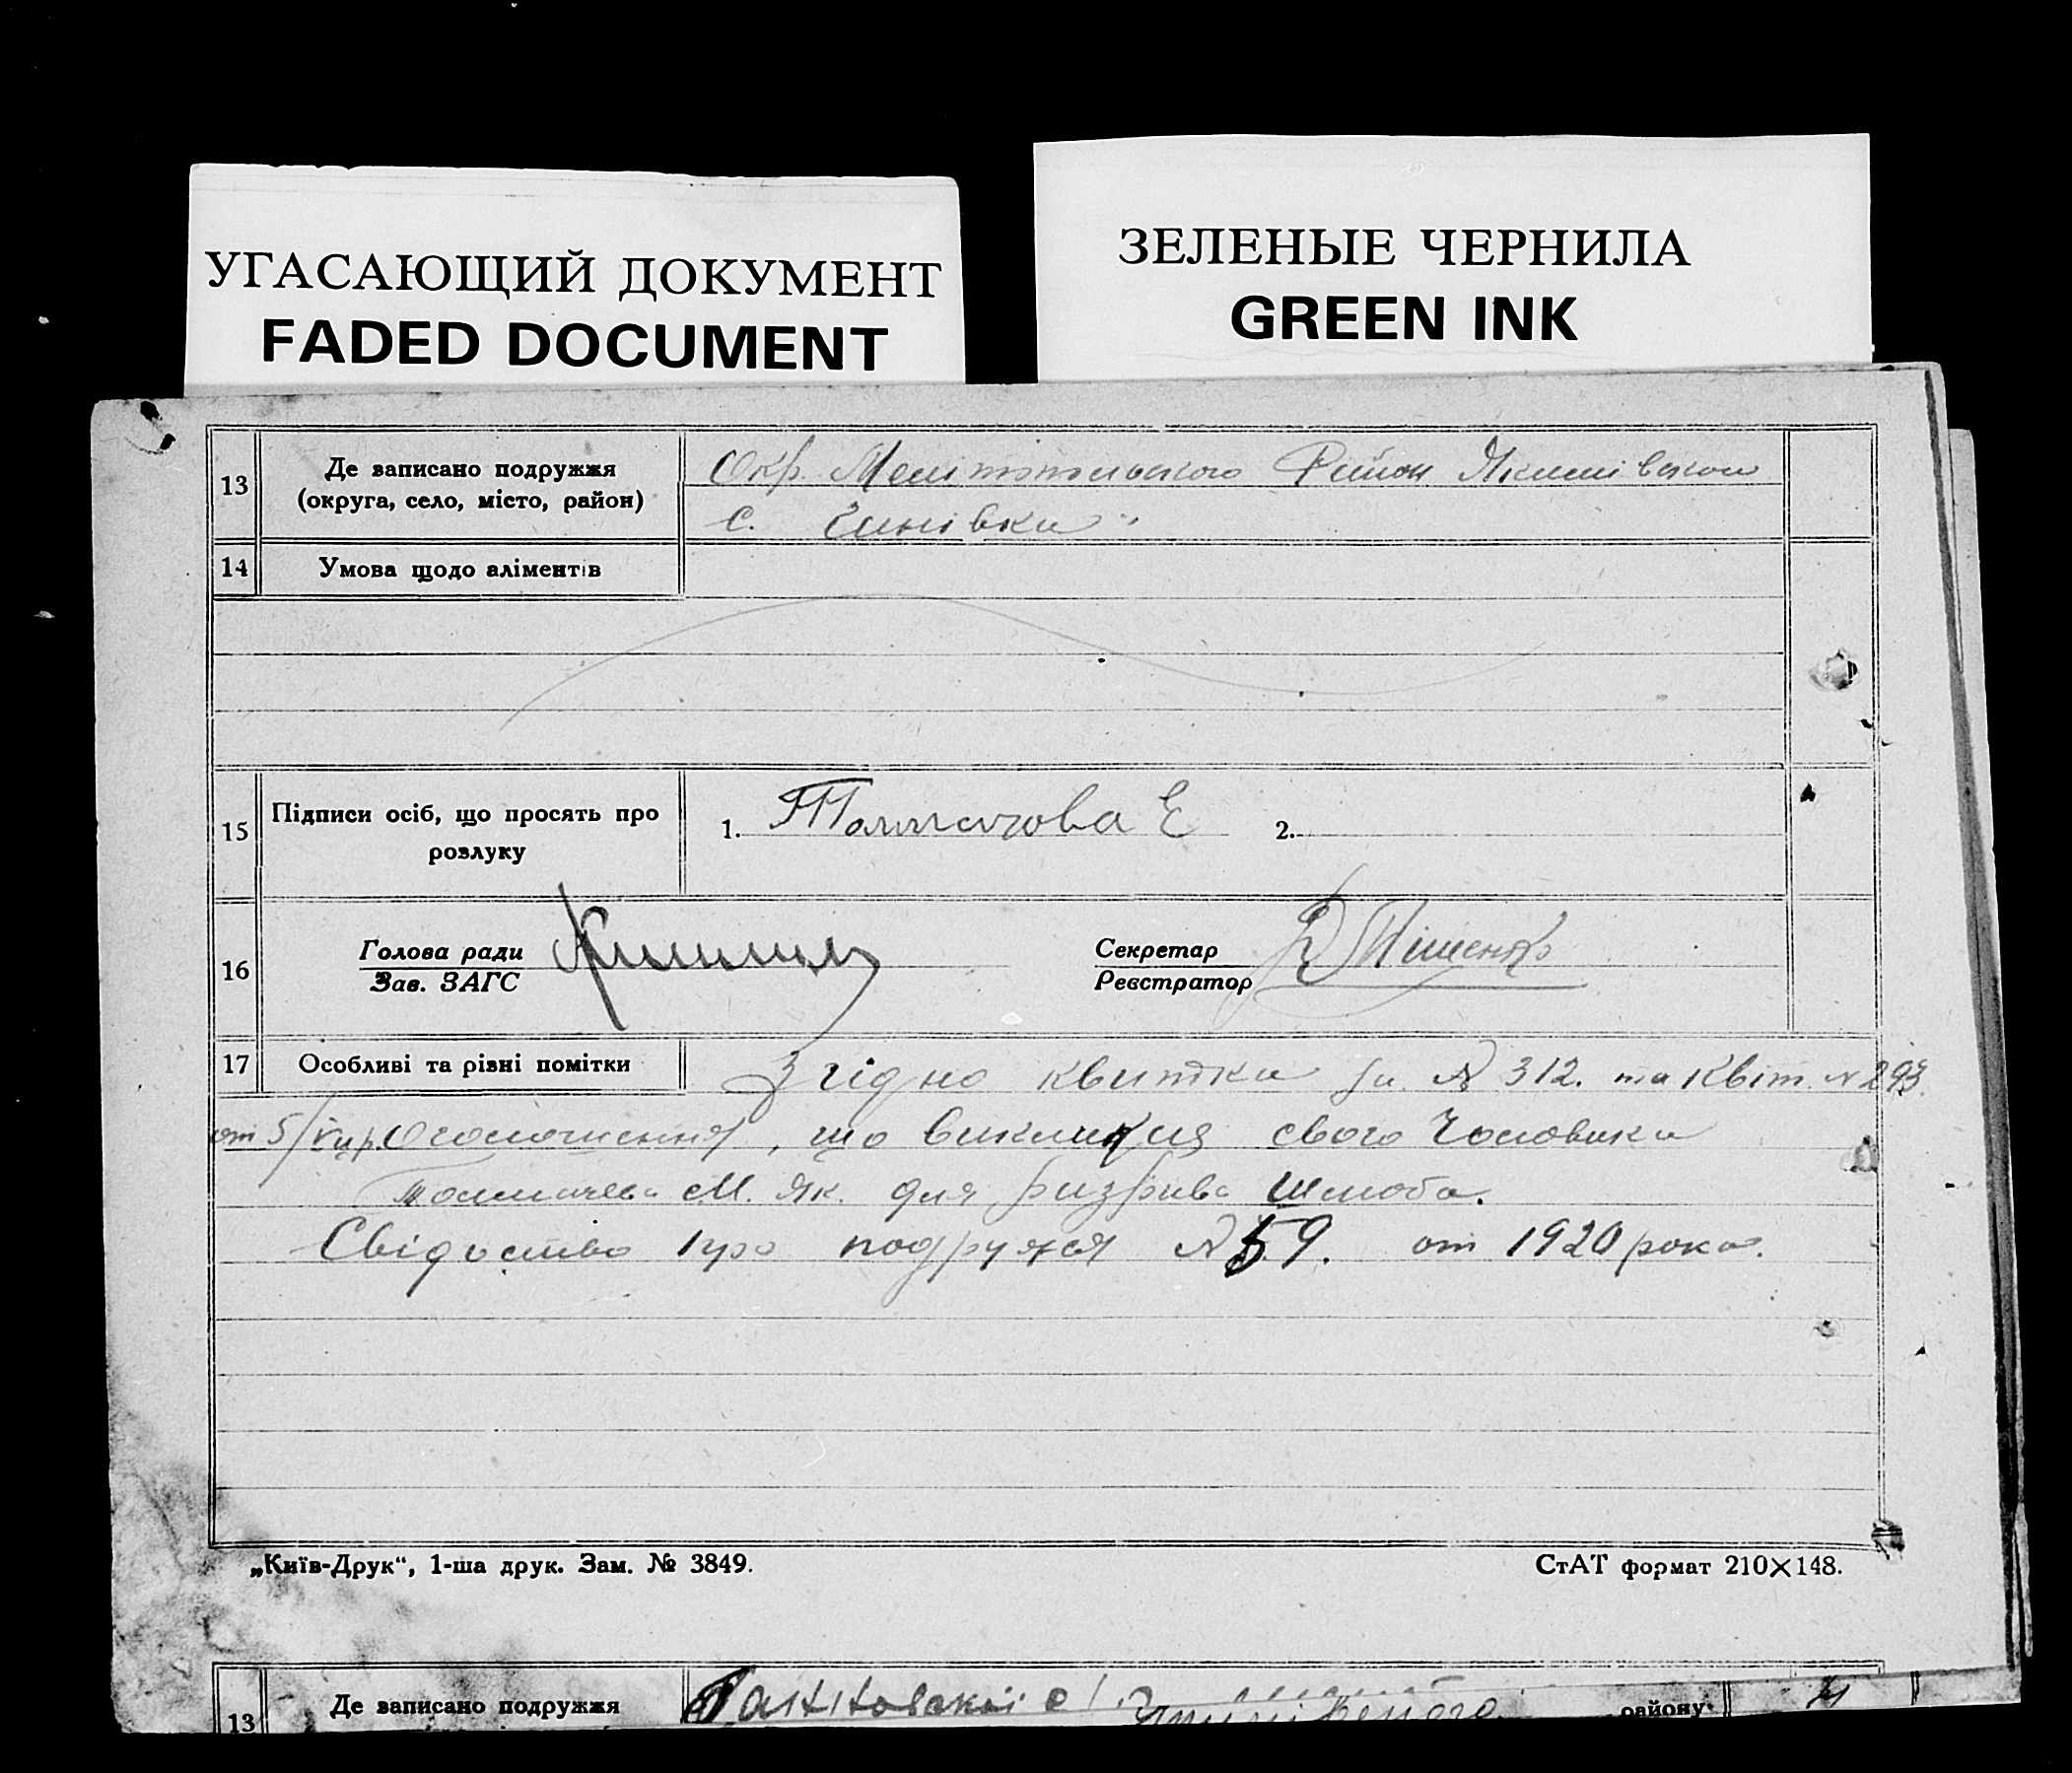 УГАСАЮЩИЙ ДОКУМЕНТ
FADED DOCUMENT
ЗЕЛЕНЫЕ ЧЕРНИЛА
GREEN INK
13 Де записано подружжя
(округа, село, місто, район)
Окр. Мелітопольского Район Якимівского
с.
14 Умова щодо аліментів
15 Підписи осіб, що просять про
розлуку
1. Толмачова Е 2.
16 Голова ради
Зав. ЗАГС
Секретар
Реєстратор
17 Особливі та різні помітки
Згідно квитка за № 312. та Квіт. №
от 5/V Оголошення, що викликая свого Чоловика
Толмачева М. Як. для разрива Шлюба.
Свідоство про подружжя № 59. от 1920 рока.
„Київ-Друк“, 1-ша друк. Зам. № 3849.
СтАТ формат 210×148.
13 Де записано подружжя
району